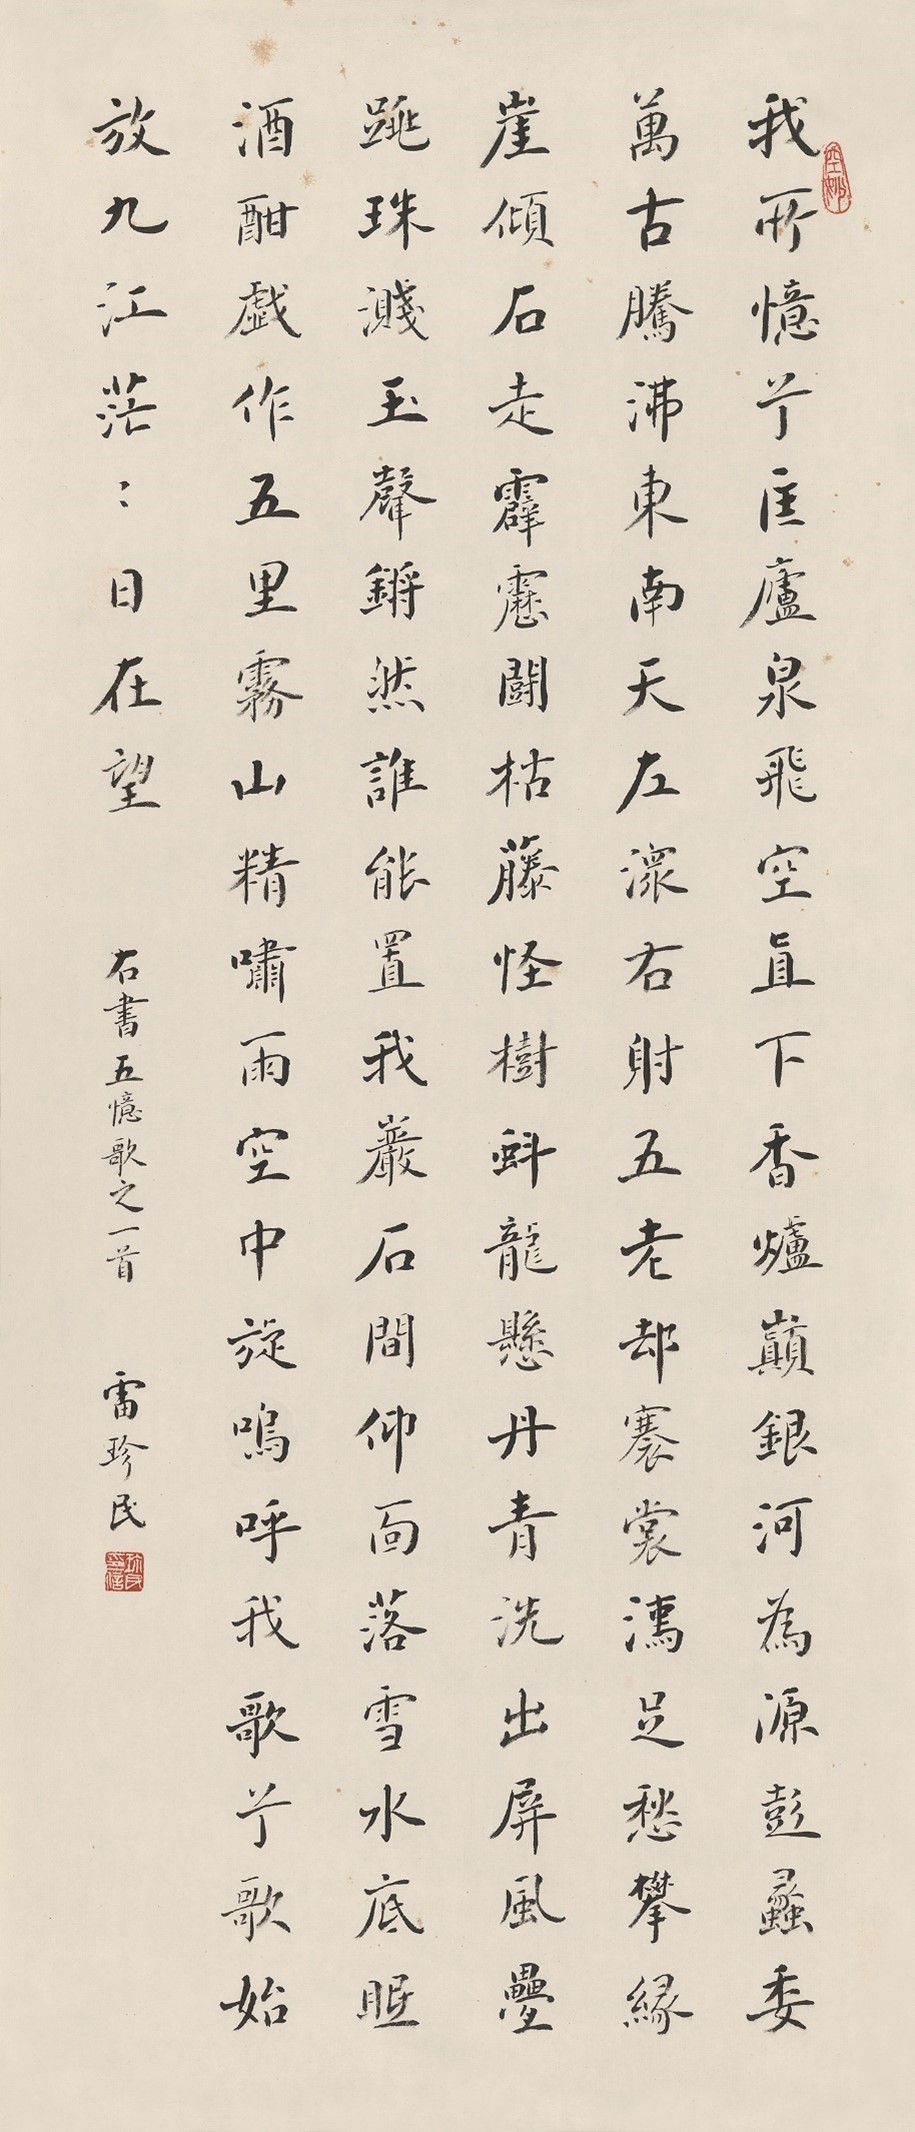 我所憶兮匡廬泉飛空直下香爐巔銀河為源彭蠡委
萬古騰沸東南天左瀠右射五老却褰裳濡足愁攀緣
崖傾石走霹靂鬪枯藤怪樹蚪龍懸丹青洗出屏風疊
跳珠濺玉聲鏘然誰能置我巖石間仰面落雪水底眠
酒酣戲作五里霧山精嘯雨空中旋嗚呼我歌兮歌始
放九江茫:日在望
右書五憶歌之一首
雷珍民